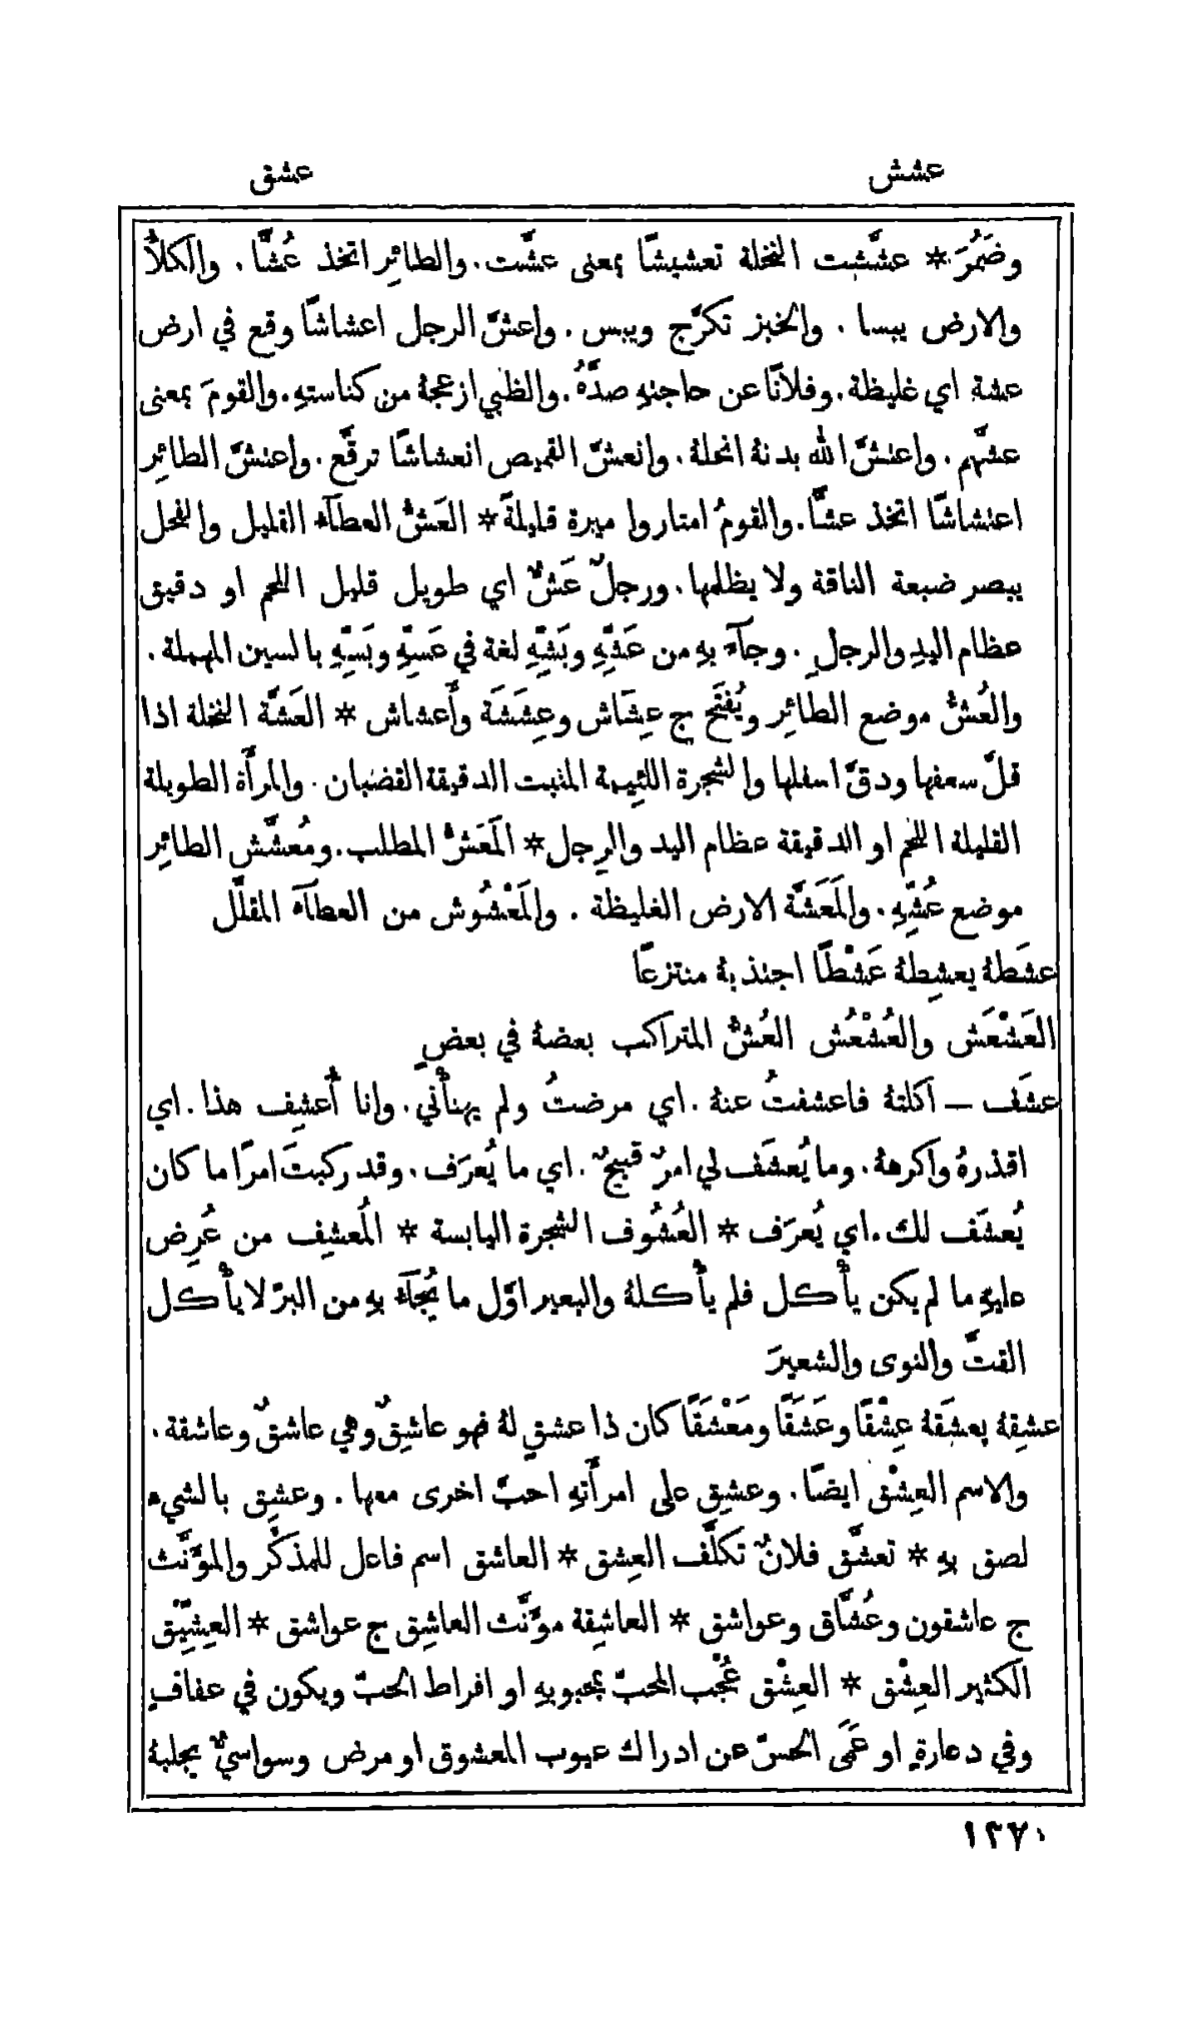 عشش
عشق
وضَمُرَ * عشَّشت النخلة تعشيشًا بمعنى عشَّت. والطائِر اتخذ عُشًّا. والكلأُ
والارض يبسا. والخبز تكرَّج ويبس. واعشَّ الرجل اعشاشًا وقع في ارض
عشة اي غليظة. وفلانًا عن حاجتهِ صدَّهُ. والظبي ازعجهُ من كناستهِ. والقومَ بمعنى
عشَّهم. واعتشَّ الله بدنهُ انحلهُ. وانعشَّ القميص انعشاشًا ترقَّع. واعتشَّ الطائِر
اعتشاشًا اتخذ عشًّا. والقومُ امتاروا ميرة قليلةً * العَشُّ العطآءُ القليل والفحل
يبصر ضبعة الناقة ولا يظلمها. ورجلٌ عَشٌّ اي طويل قليل اللحم او دقيق
عظام اليدِ والرجلِ. وجآءَ بهِ من عَشِّهِ وبَشِّهِ لغة في عَسِّهِ وبَسِّهِ بالسين المهملة.
والعُشُّ موضع الطائِر ويُفتَح ج عِشَاش وعِشَشَة وأَعشاش * العَشَّة النخلة اذا
قلَّ سعفها ودقَّ اسفلها والشجرة اللئِيمة المنبت الدقيقة القضبان. والمرأَة الطويلة
القليلة اللحم او الدقيقة عظام اليد والرِجل * المَعَشُّ المطلب. ومُعشَّش الطائِر
موضع عُشِّهِ. والمَعَشَّة الارض الغليظة. والمَعْشُوش من العطآءِ المقلَّل
عشَطهُ يعشِطهُ عَشْطًا اجتذبهُ منتزعًا
العَشْعَش والعُشْعُش العُشُّ المتراكب بعضهُ في بعضٍ
عشَف — اكلتهُ فاعشفتُ عنهُ. اي مرضتُ ولم يهنأْني. وانا أُعشِف هذا. اي
اقذرهُ واكرههُ. وما يُعشَف لي امرٌ قبيحٌ. اي ما يُعرَف. وقد ركبتَ امرًا ما كان
يُعشَف لك. اي يُعرَف * العُشُوف الشجرة اليابسة * المُعشِف من عُرِض
عليهِ ما لم يكن يأْكل فلم يأْكلهُ والبعير اوَّل ما يُجآءُ بهِ من البرّ لا يأْكل
القتَّ والنوى والشعيرَ
عشِقهُ يعشَقهُ عِشْقًا وعَشَقًا ومَعْشَقًا كان ذا عشقٍ لهُ فهو عاشِقٌ وهي عاشقٌ وعاشقة.
والاسم العِشْق ايضًا. وعشِق على امرأَتهِ احبَّ اخرى معها. وعشِق بالشيء
لصق بهِ * تعشَّق فلانٌ تكلَّف العِشق * العاشق اسم فاعل للمذكَّر والمؤَنَّث
ج عاشقون وعُشَّاق وعواشق * العاشِقة مؤَنَّث العاشِق ج عواشق * العِشِّيْق
الكثير العِشْق * العِشْق عُجْب المحبّ بمحبوبهِ او افراط الحبّ ويكون في عفافٍ
وفي دعارةٍ او عَمَى الحسّ عن ادراك عيوب المعشوق او مرض وسواسيٌّ يجلبهُ
١٢٧٠